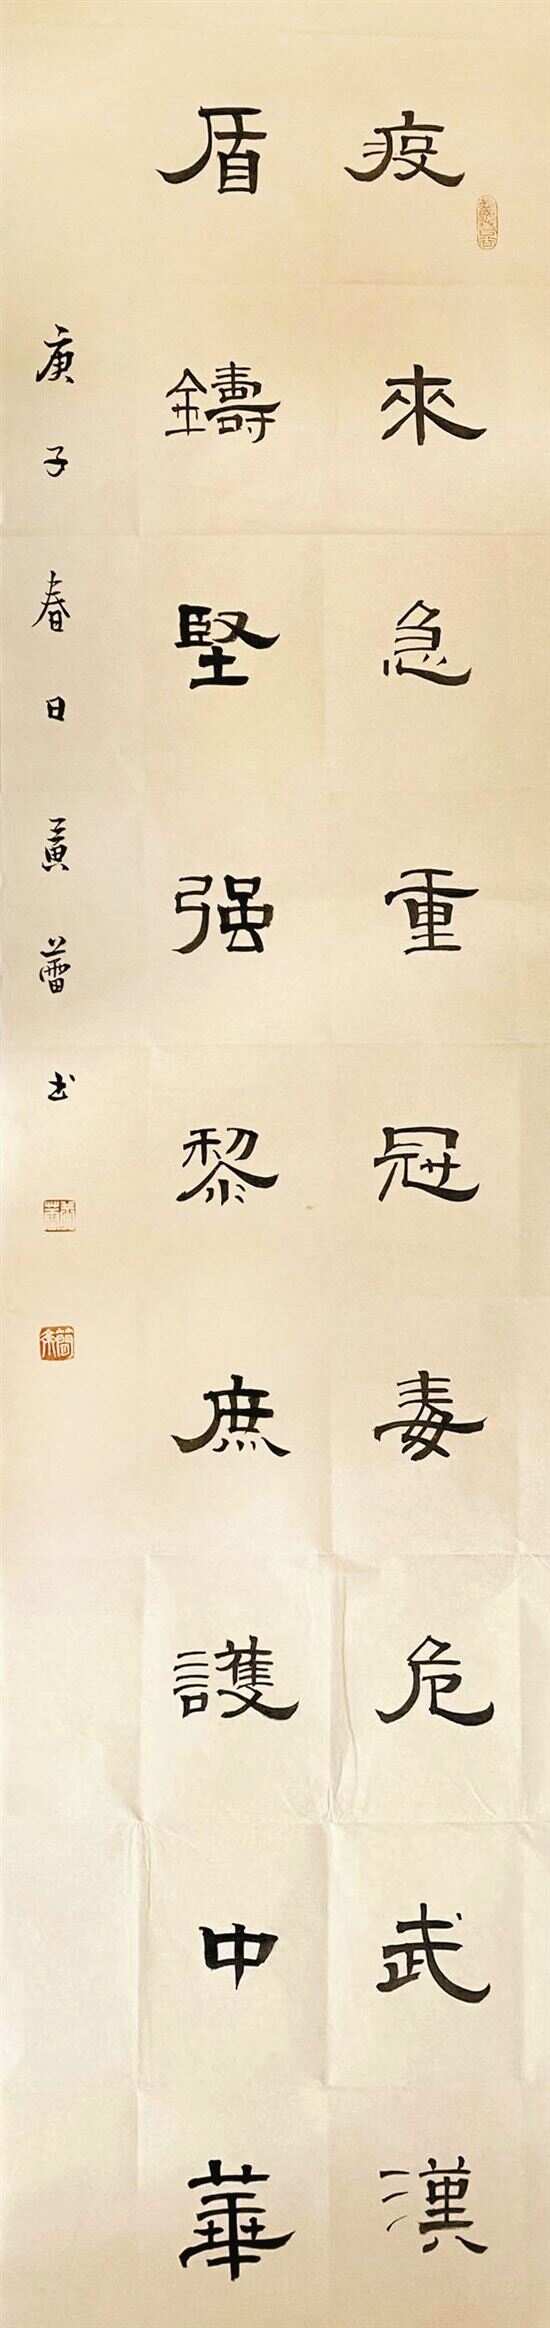 疫來急重冠毒危武漢
盾鑄堅强黎庶護中華
庚子春日黄蕾书